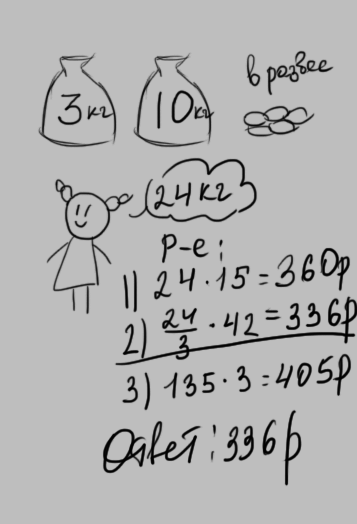 3кг
10кг
в развес
24кг
Р-е:
1) 24 · 15 = 360р
2) 24/3 · 42 = 336р
3) 135 · 3 = 405р
Ответ: 336р